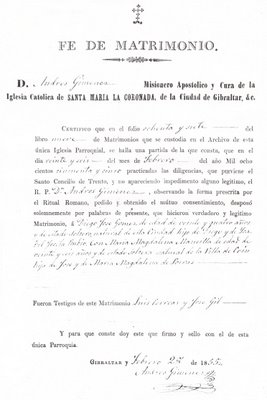 FE DE MATRIMONIO.
D. Andres Gimenez Misionero Apostolico y Cura de la
Iglesia Catolica de SANTA MARIA LA CORONADA, de la Ciudad de Gibraltar, &c.
CERTIFICO que en el folio ochenta y siete del
libro nueve de Matrimonios que se custodia en el Archivo de esta
única Iglesia Parroquial, se halla una partida de la que consta, que en el
dia veinte y seis del mes de Febrero del año Mil ocho
cientos cincuenta y cinco practicadas las diligencias, que previene el
Santo Concilio de Trento, y no apareciendo impedimento alguno legitimo, el
R. P. Dn. Andres Gimenez, observando la forma prescrita por
el Ritual Romano, pedido y obtenido el mútuo consentimiento, desposó
solemnemente por palabras de presente, que hicieron verdadero y legítimo
Matrimonio, á Diego José Gomez de edad de veinte y cuatro años
y de estado soltero, natural de esta Ciudad hijo de Diego y de
con Maria Magdalena de edad de
veinte y seis años y de estado soltera natural de la Villa de
hija de José y de Maria Magdalena de
Fueron Testigos de este Matrimonio Luis y José Gil
Y para que conste doy este que firmo y sello con el de esta
única Parroquia.
GIBRALTAR y Febrero de 1855
Andres Gimenez